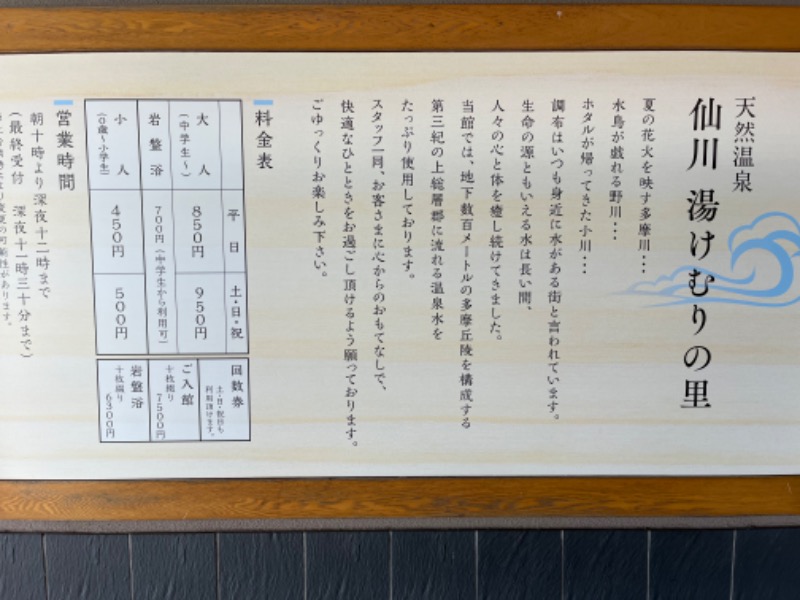 天然温泉
仙川 湯けむりの里
夏の花火を映す多摩川・・・
水鳥が戯れる野川・・・
ホタルが帰ってきた小川・・・
調布はいつも身近に水がある街と言われています。
生命の源ともいえる水は長い間、
人々の心と体を癒し続けてきました。
当館では、地下数百メートルの多摩丘陵を構成する
第三紀の上総層群に流れる温泉水を
たっぷり使用しております。
スタッフ一同、お客さまに心からのおもてなしで、
快適なひとときをお過ごし頂けるよう願っております。
ごゆっくりお楽しみ下さい。
料金表
平日
土・日・祝
大人
(中学生～)
850円
950円
岩盤浴
700円(中学生から利用可)
小人
(0歳～小学生)
450円
500円
回数券
土・日・祝日も
利用頂けます。
ご入館
十枚綴り
7500円
岩盤浴
十枚綴り
6300円
営業時間
朝十時より深夜十二時まで
(最終受付 深夜十一時三十分まで)
変更の可能性があります。